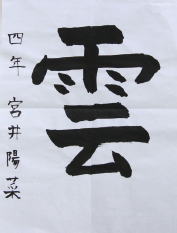 雲
四年 宮井陽菜